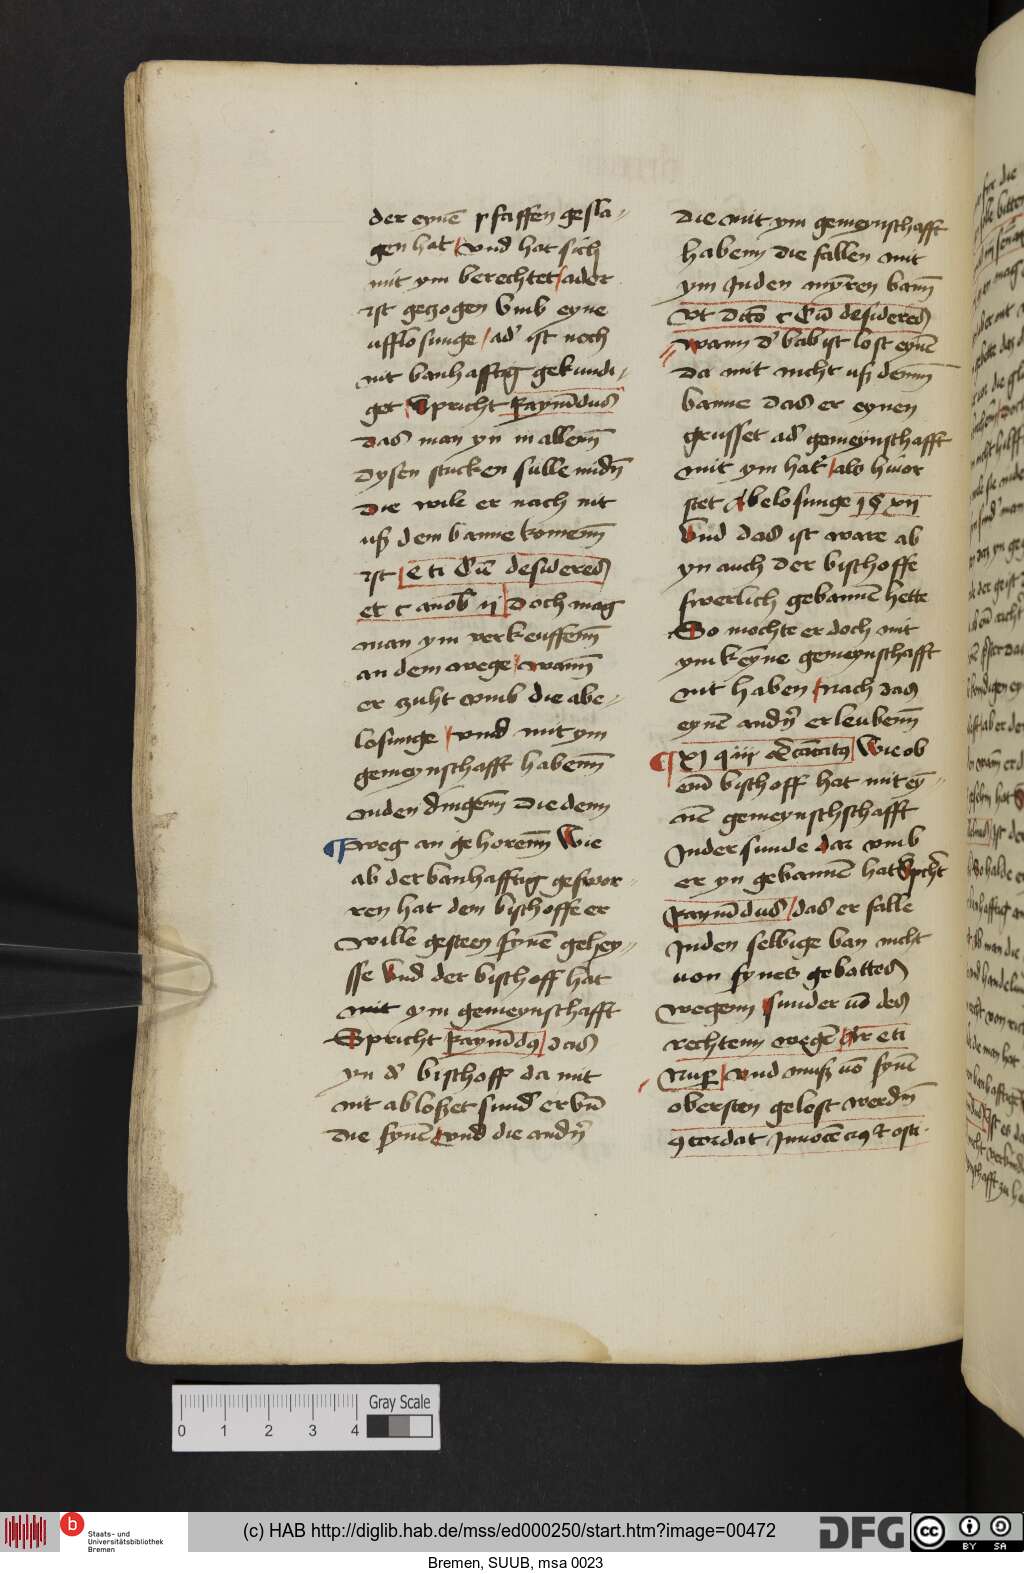 der eynē pfaffen gesla„
gen hat / vnd hat sich
mit ym berechtet / ader
ist gezogen vmb eyne
ufflosunge / ad' ist noch
nit banhafftig gekundi„
get Spricht Raymūdus
das man yn in allenn
dysen stucken sulle midn̄
die wile er nach nit
uſz dem banne komenn
ist
et c
Doch mag
man ym verkeuffenn
an dem wege / wann
er zuht vmb die abe„
losunge / vnd mit ym
gemeynschafft habenn
inden dingenn die denn
weg an gehorenn Wie
ab der banhafftig geswor„
ren hat dem bischoffe er
wille gesteen synē gehey„
sse Vnd der bischoff hat
mit ym gemeynschafft
Spricht Raymūdꝰ / das
yn d' bischoff da mit
nit abloszet sund' er vn̄
die synē vnd die andn̄
die mit ym gemeynschafft
habenn die fallen mit
ym Inden myn̄ren bann
desideres
wann d' babist lost eynē
da mit nicht uſz denm
banne das er eynen
grusset ad' gemeynschafft
mit ym hat / also hiuor
stet Abelosunge j § xij
Vnd das ist ware ab
yn auch der bischoffe
swerlich gebannē hette
So mochte er doch mit
ym keyne gemeynschafft
nit haben / nach das
eynē andn̄ erleubenn
XI q iij Wie ob
ein bischoff hat mit ey„
nē gemeynschschafft
Inder sunde dar vmb
er yn gebannē hat Spricht
Raymūdus / das er falle
Inden selbige ban nicht
von synes gebottes
wegenn sunder vō des
rechtenn wegē
Nup / vnd musz vō synē
obersten gelost werdn̄
ꝯcordat Innocēciꝰ et osti.
Gray Scale
0 1 2 3 4
b Staats- und
Universitätsbibliothek
Bremen
(c) HAB http://diglib.hab.de/mss/ed000250/start.htm?image=00472
DFG
cc BY SA
Bremen, SUUB, msa 0023